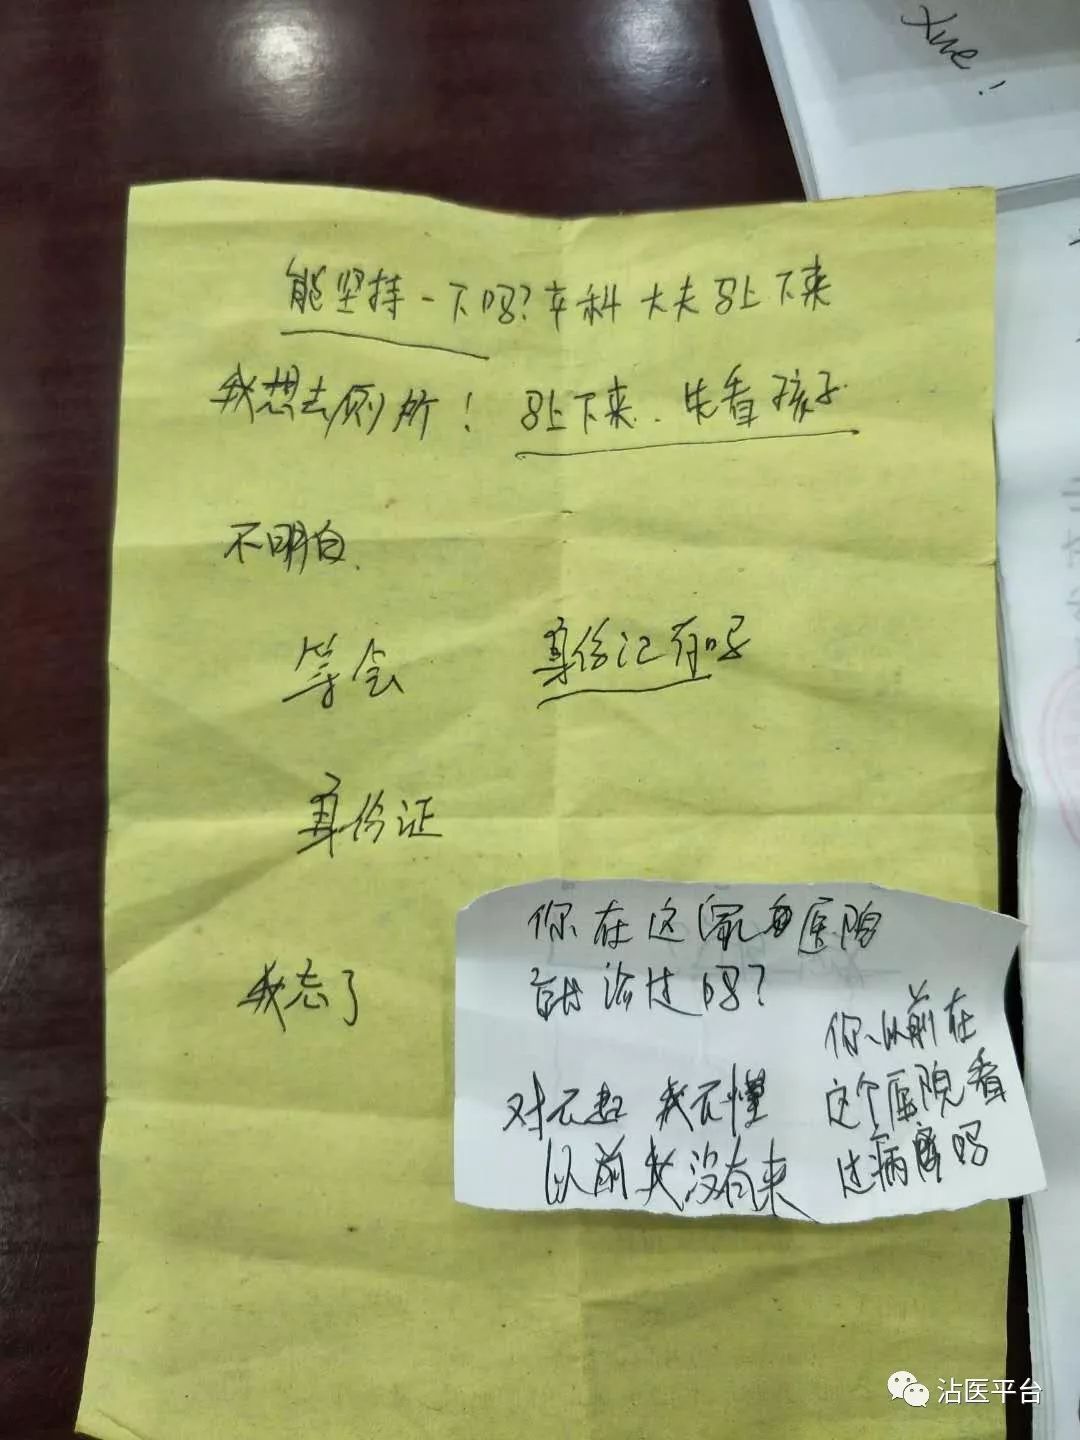 Xue!
能坚持一下吗?产科大夫马上下来
我想去厕所! 马上下来.先看孩子
不明白.
等会 身份证有吗
身份证
我忘了
你在这家医院
就诊过吗?
对不起 我不懂
以前我没有来
你以前在
这个医院看
过病吗
沾医平台